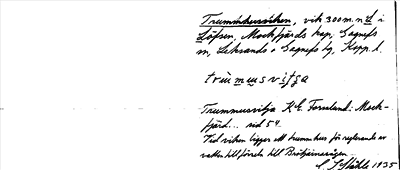 Trumhusviken, vik 300 m. n.d. i
Löfsen, Mockfjärds kap, Gagnefs
sn, Leksands o Gagnefs tg, Kopp. l.
trùmusvi̬ʒa
Trummusvitja K.E. Forsslund: Mock-
fjärd... sid 54
Vid viken ligger ett trummhus för reglerande av
vattentillförseln till
S Ståhle 1935